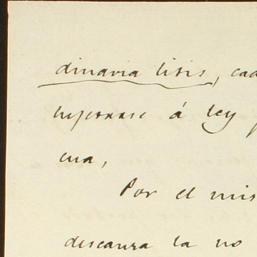 dinaria litis, cad
á ley
ena,
Por el mis
descansa la no